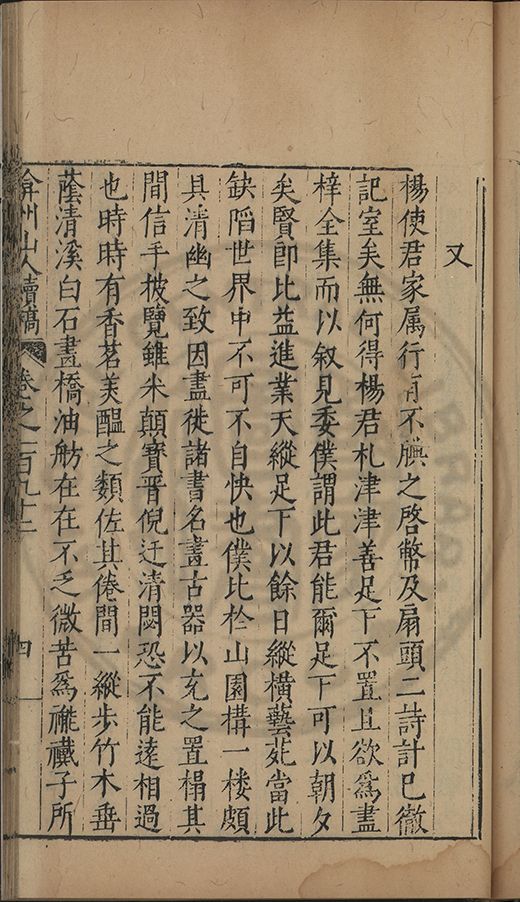 又
楊使君家属行有不腆之啓幣及扇頭二詩計已徹
記室矣無何得楊君札津津善足下不置且欲爲盡
梓全集而以叙見委僕謂此君能爾足下可以朝夕
矣賢郎比益進業天縱足下以餘日縱橫藝苑當此
缺陷世界中不可不自快也僕比於山園構一楼頗
具清幽之致因盡徙諸書名畫古器以充之置榻其
間信手披覽雖米顛寶晋倪迂清閟恐不能遠相過
也時時有香茗美醖之類佐其倦間一縱步竹木垂
蔭清溪白石畫橋油舫在在不乏微苦爲褦襶子所
弇州山人續稿 卷之一百九十二 四